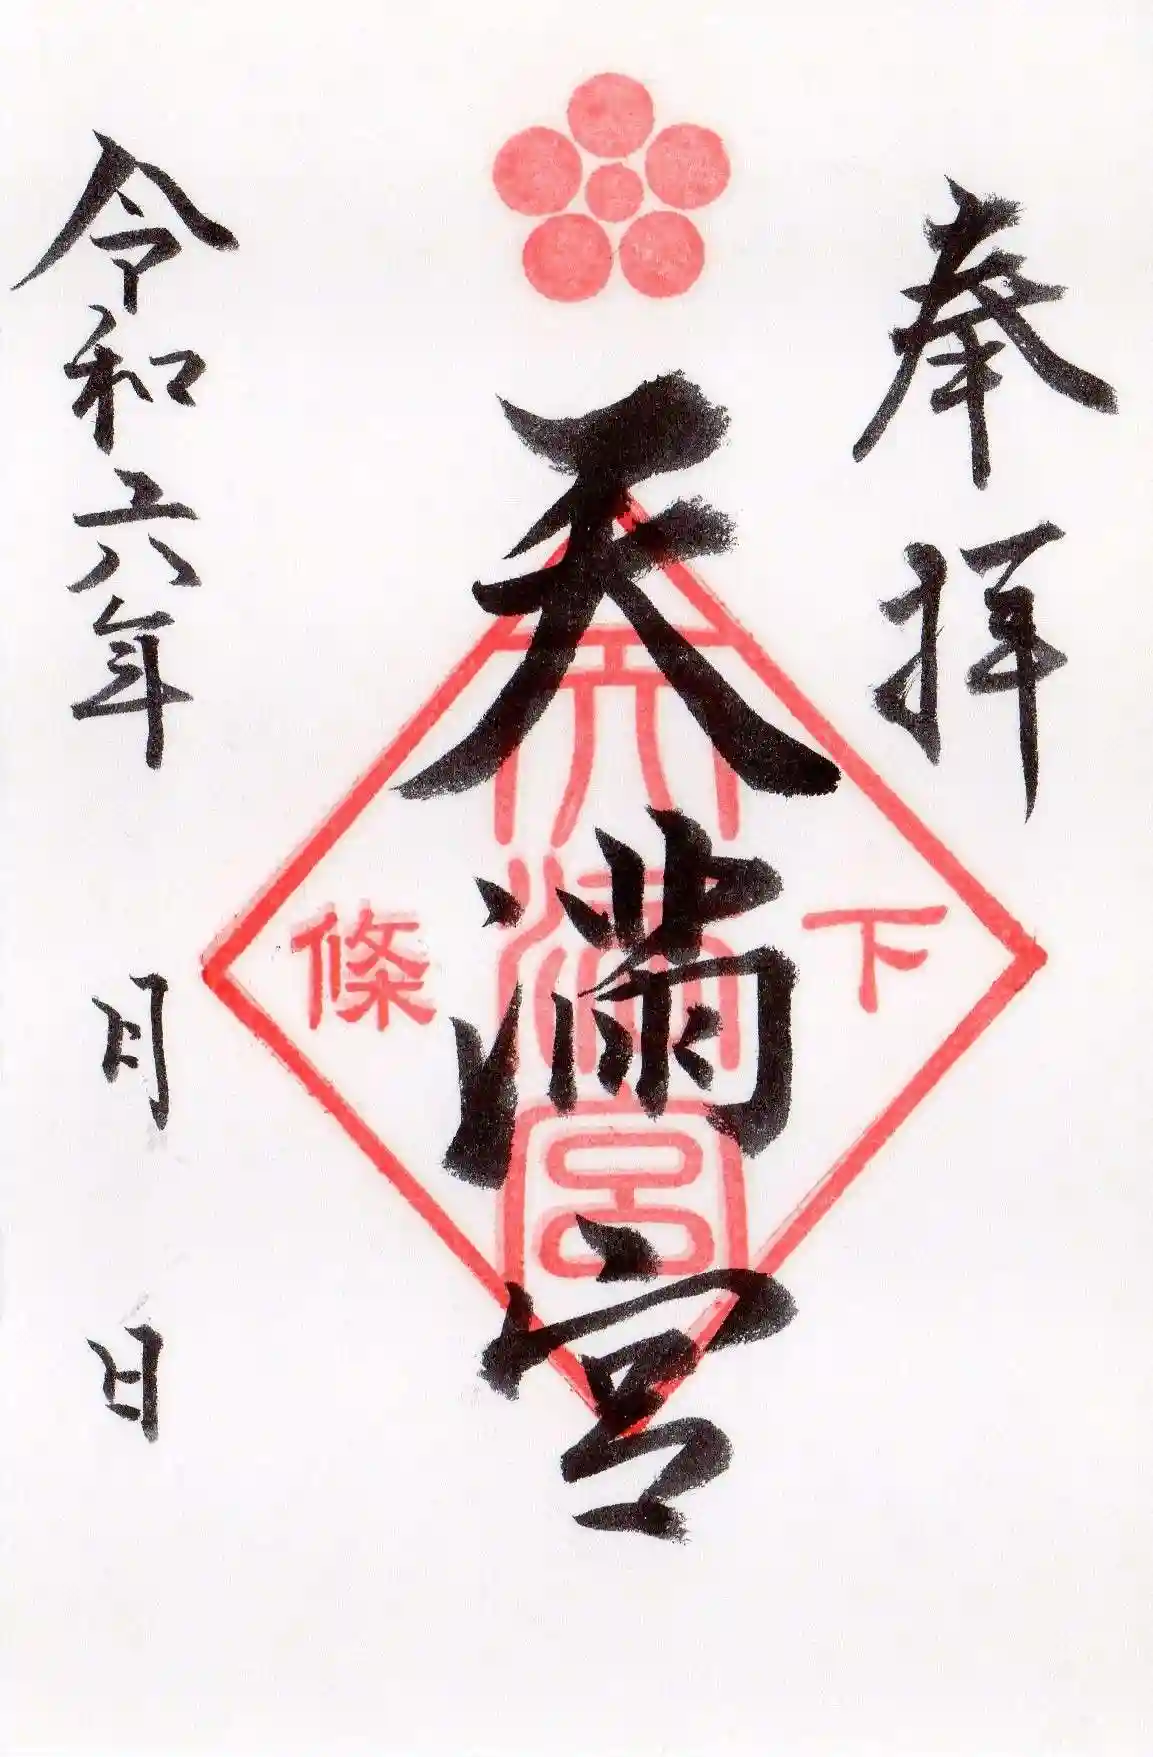 奉拝
下
天満宮
天満宮
條
令和六年 月 日